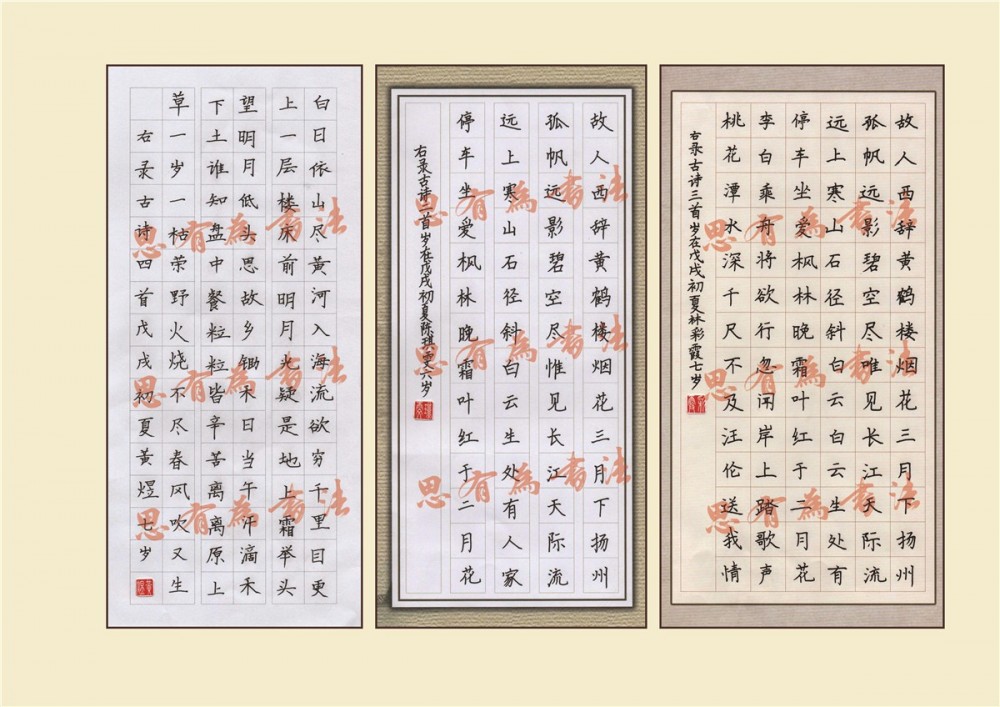 白日依山尽黄河入海流欲穷千里目更
上一层楼床前明月光疑是地上霜举头
望明月低头思故乡锄禾日当午汗滴禾
下土谁知盘中餐粒粒皆辛苦离离原上
草一岁一枯荣野火烧不尽春风吹又生
右录古诗四首戊戌初夏黄煜七岁
思有為書法
思有為書法
思有為書法
故人西辞黄鹤楼烟花三月下扬州
孤帆远影碧空尽惟见长江天际流
远上寒山石径斜白云生处有人家
停车坐爱枫林晚霜叶红于二月花
右录古诗二首岁在戊戌初夏陈琪雯六岁
思有為書法
思有為書法
思有為書法
故人西辞黄鹤楼烟花三月下扬州
孤帆远影碧空尽唯见长江天际流
远上寒山石径斜白云白云生处有
停车坐爱枫林晚霜叶红于二月花
李白乘舟将欲行忽闻岸上踏歌声
桃花潭水深千尺不及汪伦送我情
右录古诗三首岁在戊戌初夏林彩霞七岁
思有為書法
思有為書法
思有為書法